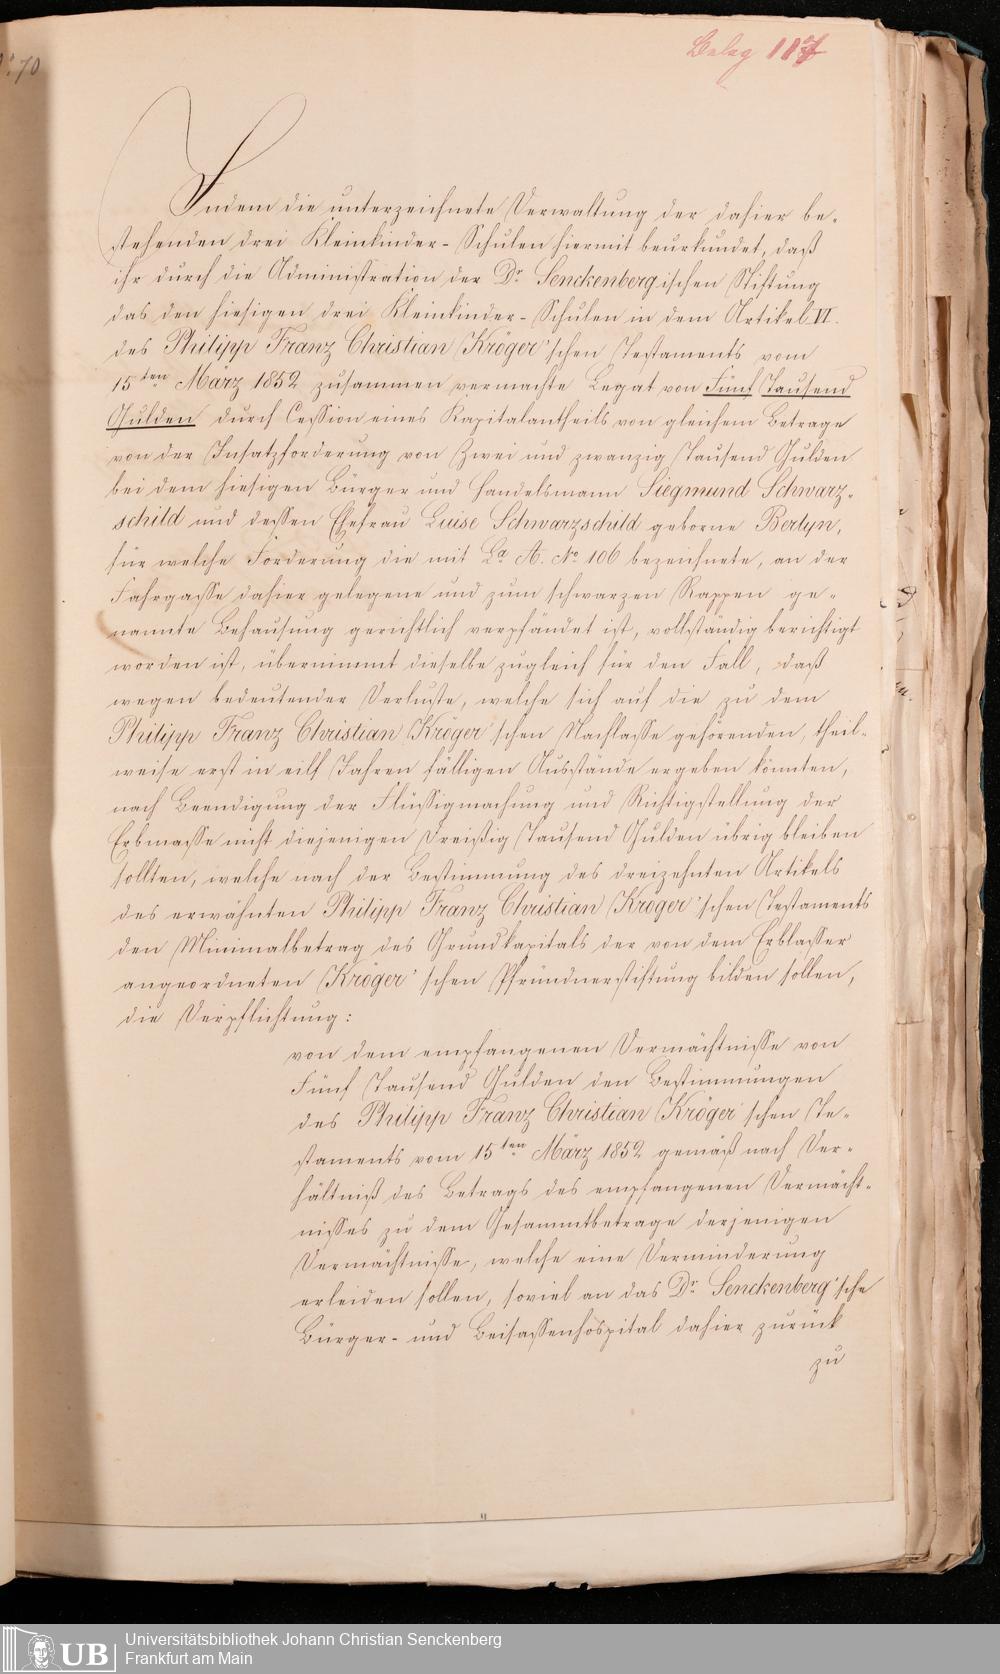 70
Beleg 117
Indem die unterzeichnete Verwaltung der dahier be-
stehenden drei Kleinkinder-Schulen hiermit beurkundet, daß
ihr durch die Administration der Dr. Senckenbergischen Stiftung
das den hiesigen drei Kleinkinder-Schulen in dem Artikel VI.
des Philipp Franz Christian Kröger'schen Testaments vom
15ten März 1852 zusammen vermachte Legat von Fünf Tausend
Gulden durch Cession eines Kapitalantheils von gleichem Betrage
von der Insatzforderung von Zwei und zwanzig Tausend Gulden
bei dem hiesigen Bürger und Handelsmann Siegmund Schwarz-
schild und dessen Ehefrau Luise Schwarzschild geborne Berlyn,
für welche Forderung die mit La. A. No. 106 bezeichnete, an der
Fahrgasse dahier gelegene und zum schwarzen Rappen ge-
nannte Behausung gerichtlich verpfändet ist, vollständig berichtigt
worden ist, übernimmt dieselbe zugleich für den Fall, daß
wegen bedeutender Verluste, welche sich auf die zu dem
Philipp Franz Christian Kröger'schen Nachlasse gehörenden, theil-
weise erst in eilf Jahren fälligen Ausstände ergeben könnten,
nach Beendigung der Flüssigmachung und Richtigstellung der
Erbmasse nicht diejenigen Dreißig Tausend Gulden übrig bleiben
sollten, welche nach der Bestimmung des dreizehnten Artikels
des erwähnten Philipp Franz Christian Kröger'schen Testaments
den Minimalbetrag des Grundkapitals der von dem Erblasser
angeordneten Kröger'schen Pfründnerstiftung bilden sollen,
die Verpflichtung:
von dem empfangenen Vermächtnisse von
Fünf Tausend Gulden den Bestimmungen
des Philipp Franz Christian Kröger'schen Te-
staments vom 15ten März 1852 gemäß nach Ver-
hältniß des Betrags des empfangenen Vermächt-
nisses zu dem Gesammtbetrage derjenigen
Vermächtnisse, welche eine Verminderung
erleiden sollen, soviel an das Dr. Senckenberg'sche
Bürger- und Beisassenhospital dahier zurück
zu
UB
Universitätsbibliothek Johann Christian Senckenberg
Frankfurt am Main